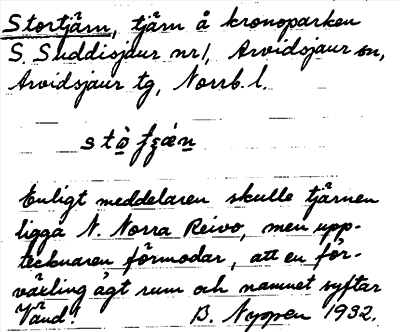 Stortjärn, tjärn å kronoparken
S. Suddisjaur nr 1, Arvidsjaur sn,
Arvidsjaur tg, Norrb. l.
Enligt meddelaren skulle tjärnen
ligga N. Norra Reivo, men upp-
tecknaren förmodar, att en för-
växling ägt rum och namnet syftar
Vänd! B. Nyppen 1932.